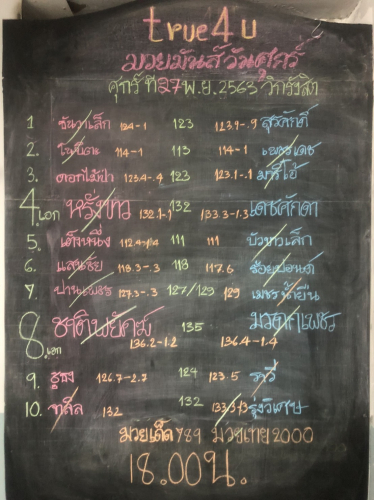 true4u
มวยมันส์วันศุกร์
ศุกร์ ที่ 27 พ.ย. 2563 วิกรังสิต
1. ขันทาเล็ก 124-1 123 123.9-.9 สุรศักดิ์
2. 114-1 113 114-1 เพชรเดช
3. ดอกไม้ป่า 123.4-.4 123 123.1-.1 มาริโอ้
4.เอก หรั่งขาว 132.1-.1 132 133.3-1.3 เดชศักดา
5. เต็งหนึ่ง 112.4-1.4 111 111 บัวขาวเล็ก
6. แสนชัย 118.3-.3 118 117.6
7. ปานเพชร 127.3-.3 127/129 129 เพชรน้ำยืน
8.เอก ชาติพยัคฆ์ 136.2-1.2 135 136.4-1.4 มรดกเพชร
9. 126.7-2.7 124 123.5 ราวี
10. 132 132 133.3-1.3 รุ่งวิเศษ
มวยเด็ด 789 มวยไทย 2000
18.00น.